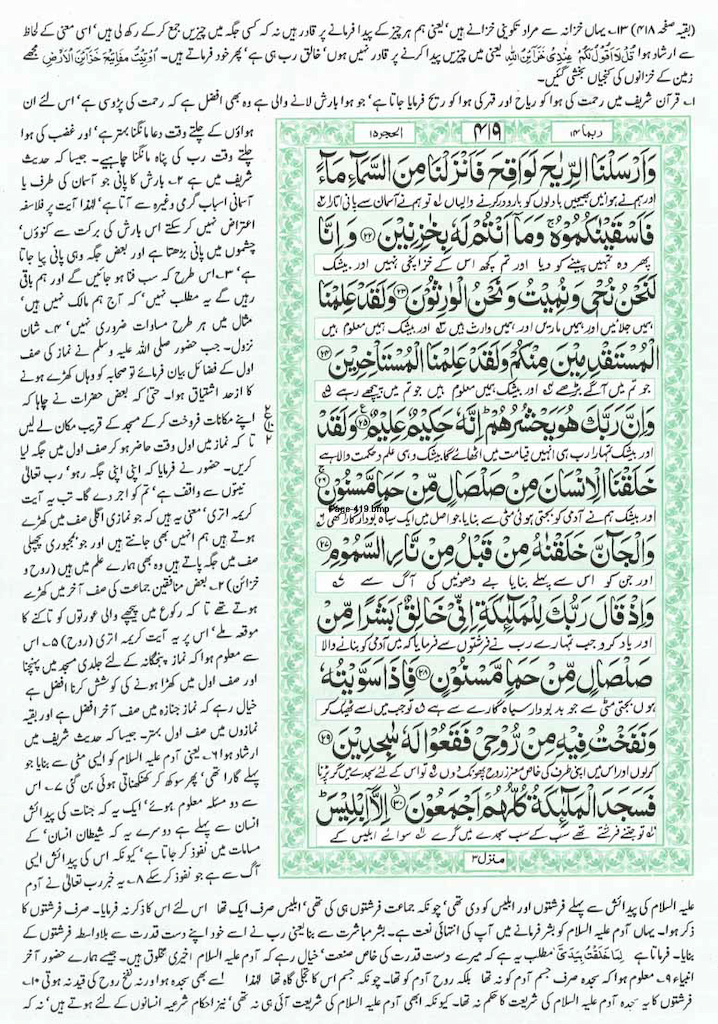 (بقیہ صفحہ ۴۱۸) ۱۳؎ یہاں خزانہ سے مراد تکوینی خزانے ہیں' یعنی ہم ہر چیز کے پیدا فرمانے پر قادر ہیں نہ کہ کسی جگہ میں چیزیں جمع کر کے رکھ لی ہیں' اسی معنی کے لحاظ
سے ارشاد ہوا قُلْ لَّا اَقُوْلُ لَكُمْ عِنْدِیْ خَزَآئِنُ اللہِ یعنی میں چیزیں پیدا کرنے پر قادر نہیں ہوں' خالق رب ہی ہے' پھر خود فرماتے ہیں۔ اُوْتِیْتُ مَفَاتِیْحَ خَزَآئِنِ الْاَرْضِ مجھے
زمین کے خزانوں کی کنجیاں بخشی گئیں۔
۱؎ قرآن شریف میں رحمت کی ہوا کو ریاح اور قہر کی ہوا کو ریح فرمایا جاتا ہے' جو ہوا بارش لانے والی ہے وہ بھی افضل ہے کہ رحمت کی پڑوسی ہے' اس لئے ان
ربما ۱۴
۴۱۹
الحجر ۱۵
وَاَرْسَلْنَا الرِّيٰحَ لَوَاقِحَ فَاَنْزَلْنَا مِنَ السَّمَآءِ مَآءً
اور ہم نے ہوائیں بھیجیں بادلوں کو بارور کرنے والیاں تو ہم نے آسمان سے پانی اتارا
فَاَسْقَيْنٰكُمُوْهُ ۚ وَمَاۤ اَنْتُمْ لَهٗ بِخٰزِنِيْنَ ﴿۲۲﴾ وَاِنَّا
پھر وہ تمہیں پینے کو دیا اور تم کچھ اس کے خزانچی نہیں اور بیشک
لَنَحْنُ نُحْيٖ وَنُمِيْتُ وَنَحْنُ الْوٰرِثُوْنَ ﴿۲۳﴾ وَلَقَدْ عَلِمْنَا
ہمیں جلائیں اور ہمیں ماریں اور ہمیں وارث ہیں اور بیشک ہمیں معلوم ہیں
الْمُسْتَقْدِمِيْنَ مِنْكُمْ وَلَقَدْ عَلِمْنَا الْمُسْتَاْخِرِيْنَ ﴿۲۴﴾
جو تم میں آگے بڑھے اور بیشک ہمیں معلوم ہیں جو تم میں پیچھے رہے
وَاِنَّ رَبَّكَ هُوَ يَحْشُرُهُمْ ؕ اِنَّهٗ حَكِيْمٌ عَلِيْمٌ ﴿۲۵﴾ وَلَقَدْ
اور بیشک تمہارا رب ہی انہیں قیامت میں اٹھائے گا بیشک وہی علم و حکمت والا ہے
خَلَقْنَا الْاِنْسَانَ مِنْ صَلْصَالٍ مِّنْ حَمَاٍ مَّسْنُوْنٍ ﴿۲۶﴾
Page-419.bmp
اور بیشک ہم نے آدمی کو بجتی ہوئی مٹی سے بنایا جو اصل میں ایک سیاہ بودار گارا تھی
وَالْجَآنَّ خَلَقْنٰهُ مِنْ قَبْلُ مِنْ نَّارِ السَّمُوْمِ ﴿۲۷﴾
اور جن کو اس سے پہلے بنایا بے دھوئیں کی آگ سے
وَاِذْ قَالَ رَبُّكَ لِلْمَلٰٓئِكَةِ اِنِّيْ خَالِقٌۢ بَشَرًا مِّنْ
اور یاد کرو جب تمہارے رب نے فرشتوں سے فرمایا کہ میں آدمی کو بنانے والا
صَلْصَالٍ مِّنْ حَمَاٍ مَّسْنُوْنٍ ﴿۲۸﴾ فَاِذَا سَوَّيْتُهٗ
ہوں بجتی مٹی سے جو بد بودار سیاہ گارے سے ہے تو جب میں اسے ٹھیک کر
وَنَفَخْتُ فِيْهِ مِنْ رُّوْحِيْ فَقَعُوْا لَهٗ سٰجِدِيْنَ ﴿۲۹﴾
کر لوں اور اس میں اپنی طرف کی خاص معزز روح پھونک دوں تو اس کے لئے سجدے میں گر پڑنا
فَسَجَدَ الْمَلٰٓئِكَةُ كُلُّهُمْ اَجْمَعُوْنَ ﴿۳۰﴾ اِلَّاۤ اِبْلِيْسَ
تو جتنے فرشتے تھے سب کے سب سجدے میں گرے سوائے ابلیس کے
منزل ۳
ہواؤں کے چلتے وقت دعا مانگنا بہتر ہے' اور غضب کی ہوا
چلتے وقت رب کی پناہ مانگنا چاہیے۔ جیسا کہ حدیث
شریف میں ہے ۲؎ بارش کا پانی جو آسمان کی طرف یا
آسمانی اسباب گرمی وغیرہ سے آتا ہے' لہٰذا آیت پر فلاسفہ
اعتراض نہیں کر سکتے اس بارش کی برکت سے کنوؤں'
چشموں میں پانی بڑھتا ہے اور بعض جگہ وہی پانی پیا جاتا
ہے' ۳؎ اس طرح کہ سب فنا ہو جائیں گے اور ہم باقی
رہیں گے یہ مطلب نہیں' کہ آج ہم مالک نہیں ہیں'
مثال میں ہر طرح مساوات ضروری نہیں' ۴؎ شان
نزول۔ جب حضور صلی اللہ علیہ وسلم نے نماز کی صف
اول کے فضائل بیان فرمائے تو صحابہ کو وہاں کھڑے ہونے
کا ازحد اشتیاق ہوا۔ حتیٰ کہ بعض حضرات نے چاہا کہ
اپنے مکانات فروخت کر کے مسجد کے قریب مکان لے لیں
تا کہ نماز میں اول وقت حاضر ہو کر صف اول میں جگہ لیا
کریں۔ حضور نے فرمایا کہ اپنی اپنی جگہ رہو' رب تعالٰی
نیتوں سے واقف ہے' تم کو اجر دے گا۔ تب یہ آیت
کریمہ اتری' معنی یہ ہیں کہ جو نمازی اگلی صف میں کھڑے
ہوتے ہیں ہم انہیں بھی جانتے ہیں اور جو بمجبوری پچھلی
صف میں جگہ پاتے ہیں وہ بھی ہمارے علم میں ہیں (روح و
خزائن) ۲؎ بعض منافقین جماعت کی صف آخر میں کھڑے
ہوتے تھے تا کہ رکوع میں پیچھے والی عورتوں کو تاکنے کا
موقعہ ملے' اس پر یہ آیت کریمہ اتری (روح) ۵؎ اس
سے معلوم ہوا کہ نماز پنجگانہ کے لئے جلدی مسجد میں پہنچنا
اور صف اول میں کھڑا ہونے کی کوشش کرنا افضل ہے
خیال رہے کہ نماز جنازہ میں صف آخر افضل ہے اور بقیہ
نمازوں میں صف اول بہتر۔ جیسا کہ حدیث شریف میں
ارشاد ہوا ۶؎ یعنی آدم علیہ السلام کو ایسی مٹی سے بنایا جو
پہلے گارا تھی' پھر سوکھ کر کھنکھناتی ہوئی بن گئی ۷؎ اس
سے دو مسئلہ معلوم ہوئے' ایک یہ کہ جنات کی پیدائش
انسان سے پہلے ہے دوسرے یہ کہ شیطان انسان' کے
مسامات میں نفوذ کر جاتا ہے' کیونکہ اس کی پیدائش ایسی
آگ سے ہے جو نفوذ کر سکے ۸؎ یہ خبر رب تعالٰی نے آدم
علیہ السلام کی پیدائش سے پہلے فرشتوں اور ابلیس کو دی تھی' چونکہ جماعت فرشتوں ہی کی تھی' ابلیس صرف ایک تھا اس لئے اس کا ذکر نہ فرمایا۔ صرف فرشتوں کا
ذکر ہوا۔ یہاں آدم علیہ السلام کو بشر فرمانے میں آپ کی انتہائی نعت ہے۔ بشر مباشرت سے بنا یعنی رب نے اسے خود اپنے دست قدرت سے بلاواسطہ فرشتوں کے
بنایا۔ فرماتا ہے لِمَا خَلَقْتُ بِيَدَيَّ مطلب یہ ہے کہ میرے دست قدرت کی خاص صنعت' خیال رہے کہ آدم علیہ السلام اخیری مخلوق ہیں۔ جیسے ہمارے حضور آخر
انبیاء ۹؎ معلوم ہوا کہ سجدہ صرف جسم آدم کو نہ تھا بلکہ روح آدم کو تھا۔ چونکہ جسم اس کا تجلی گاہ تھا لہٰذا اسے بھی سجدہ ہوا اور نہ نفخ روح کی قید نہ ہوتی ۱۰؎
فرشتوں کا یہ سجدہ آدم علیہ السلام کی شریعت کا حکم نہ تھا۔ کیونکہ ابھی آدم علیہ السلام کی شریعت آئی ہی نہ تھی' نیز احکام شرعیہ انسانوں کے لئے ہوتے ہیں' نہ کہ